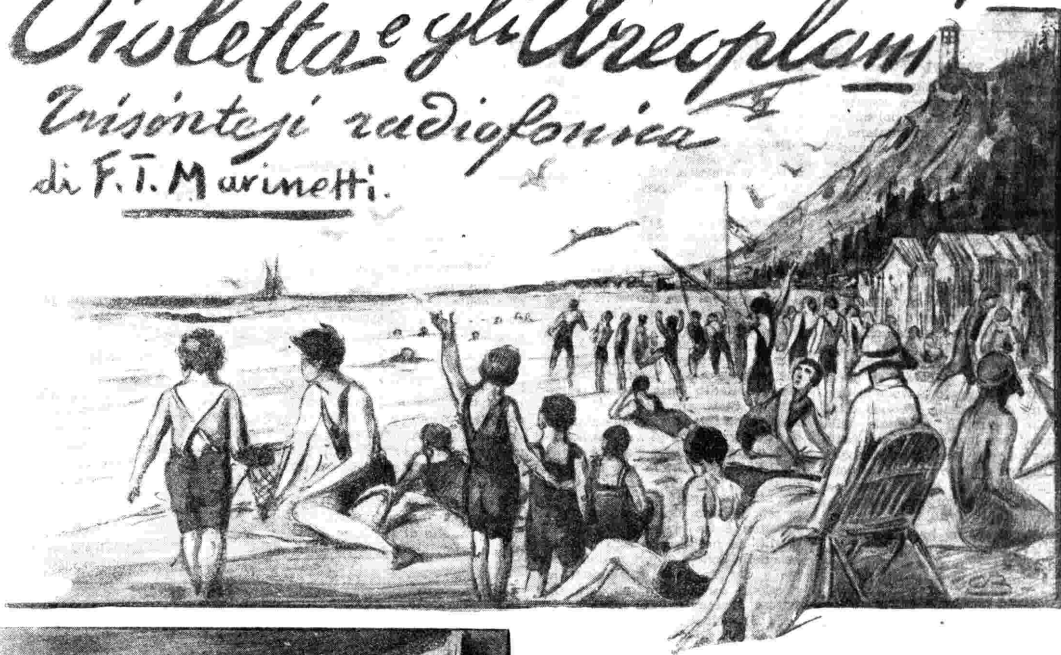 Violetta e gli Areoplani
Trisíntesi radiofonica
di F. T. Marinetti.